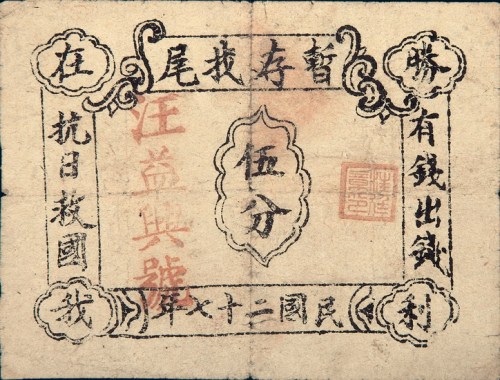 暫存找尾
勝
利
在
我
有錢出錢
伍分
汪益興號
抗日救國
民國二十七年